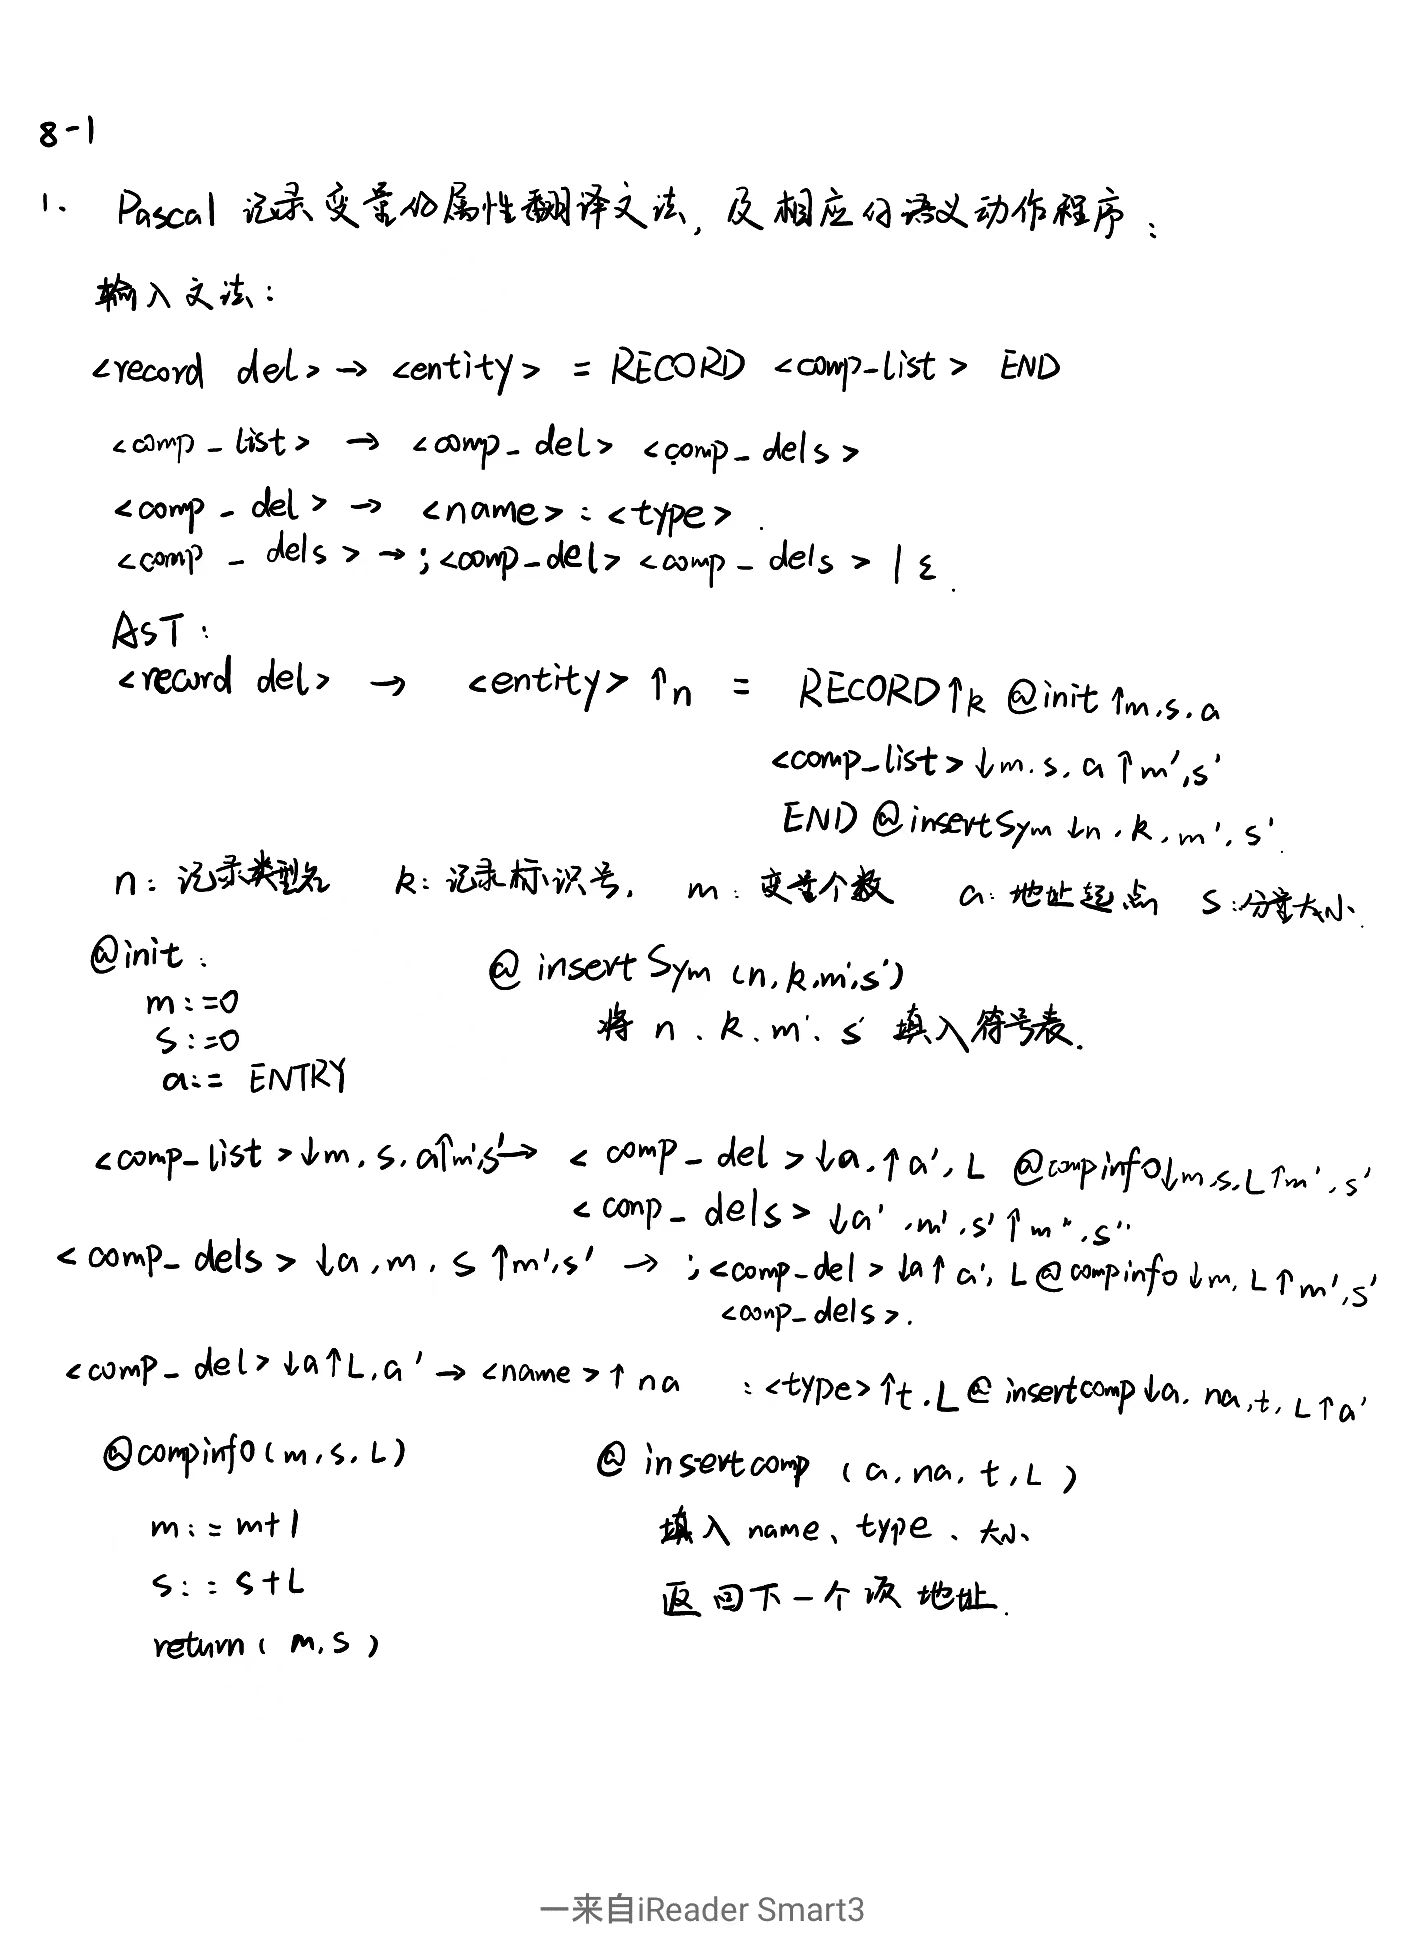 8-1
1. Pascal 记录变量的属性翻译文法, 及相应的语义动作程序:
输入文法:
<record del> → <entity> = RECORD <comp-list> END
<comp_list> → <comp_del> <comp_dels>
<comp_del> → <name> : <type>.
<comp_dels> → ; <comp_del> <comp_dels> | ε.
AST:
<record del> → <entity>↑n = RECORD↑k @init↑m.s.a
<comp_list>↓m.s.a↑m',s'
END @insertSym↓n.k.m'.s'.
n: 记录类型名 k: 记录标识号. m: 变量个数 a: 地址起点 S: 分量大小.
@init: @insertSym(n,k,m',s')
m:=0 将 n、k、m'、s' 填入符号表.
s:=0
a:= ENTRY
<comp_list>↓m.s.a↑m's'→ <comp_del>↓a.↑a', L @compinfo↓m.s.L↑m',s'
<comp_dels>↓a'.m'.s'↑m''.s''
<comp_dels>↓a,m,s↑m',s' → ;<comp_del>↓a↑a', L@compinfo↓m,L↑m',s'
<comp_dels>.
<comp_del>↓a↑L,a' → <name>↑na :<type>↑t.L@insertcomp↓a.na,t,L↑a'
@compinfo(m,s,L) @insertcomp (a,na,t,L)
m:=m+1 填入name、type、大小
s:=s+L 返回下一个项地址.
return(m,s)
一来自iReader Smart3